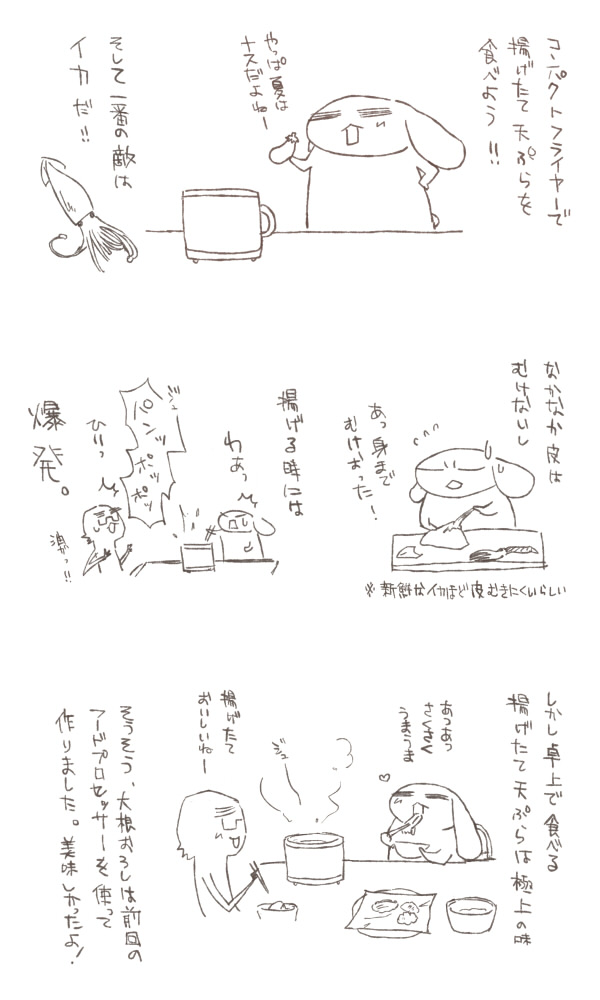 コンパクトフライヤーで
揚げたて天ぷらを
食べよう!!
やっぱ夏は
ナスだよねー
そして一番の敵は
イカだ!!
なかなか皮は
むけないし
あっ身まで
むけちゃった!
※新鮮なイカほど皮むきにくいらしい
揚げる時には
わあっ
ジュー
パンッ
ポッ
ポッ
ひいっ
油がっ!!
爆発。
しかし卓上で食べる
揚げたて天ぷらは極上の味
あつあつ
さくさく
うまうま
ジュー
揚げたて
おいしいねー
そうそう、大根おろしは前回の
フードプロセッサーを使って
作りました。美味しかったよ!